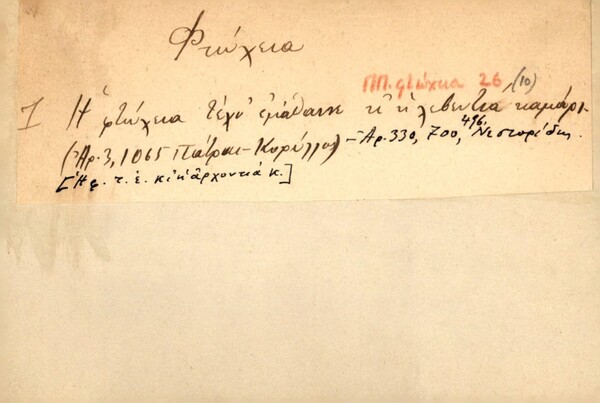 Φτώχεια
ΠΠ. φτώχεια 26 (10)
1 Ἡ φτώχεια τέχν' ἐμάθαινε κ' ἡ λεβεντιὰ καμάρι
(Ἀρ. 3, 1065 Πάτραι - Κορύλλος) - Ἀρ. 330, 700, 496, Νεστορίδης.
[Ἡ φ. τ. ἐ. κι ἡ ἀρχοντιά κ.]